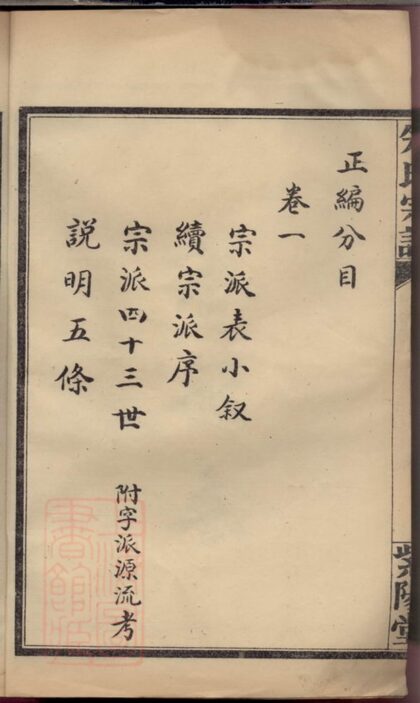 正編分目
卷一
宗派表小叙
續宗派序
宗派四十三世 附字派源流考
説明五條
氏宗譜
紫陽堂